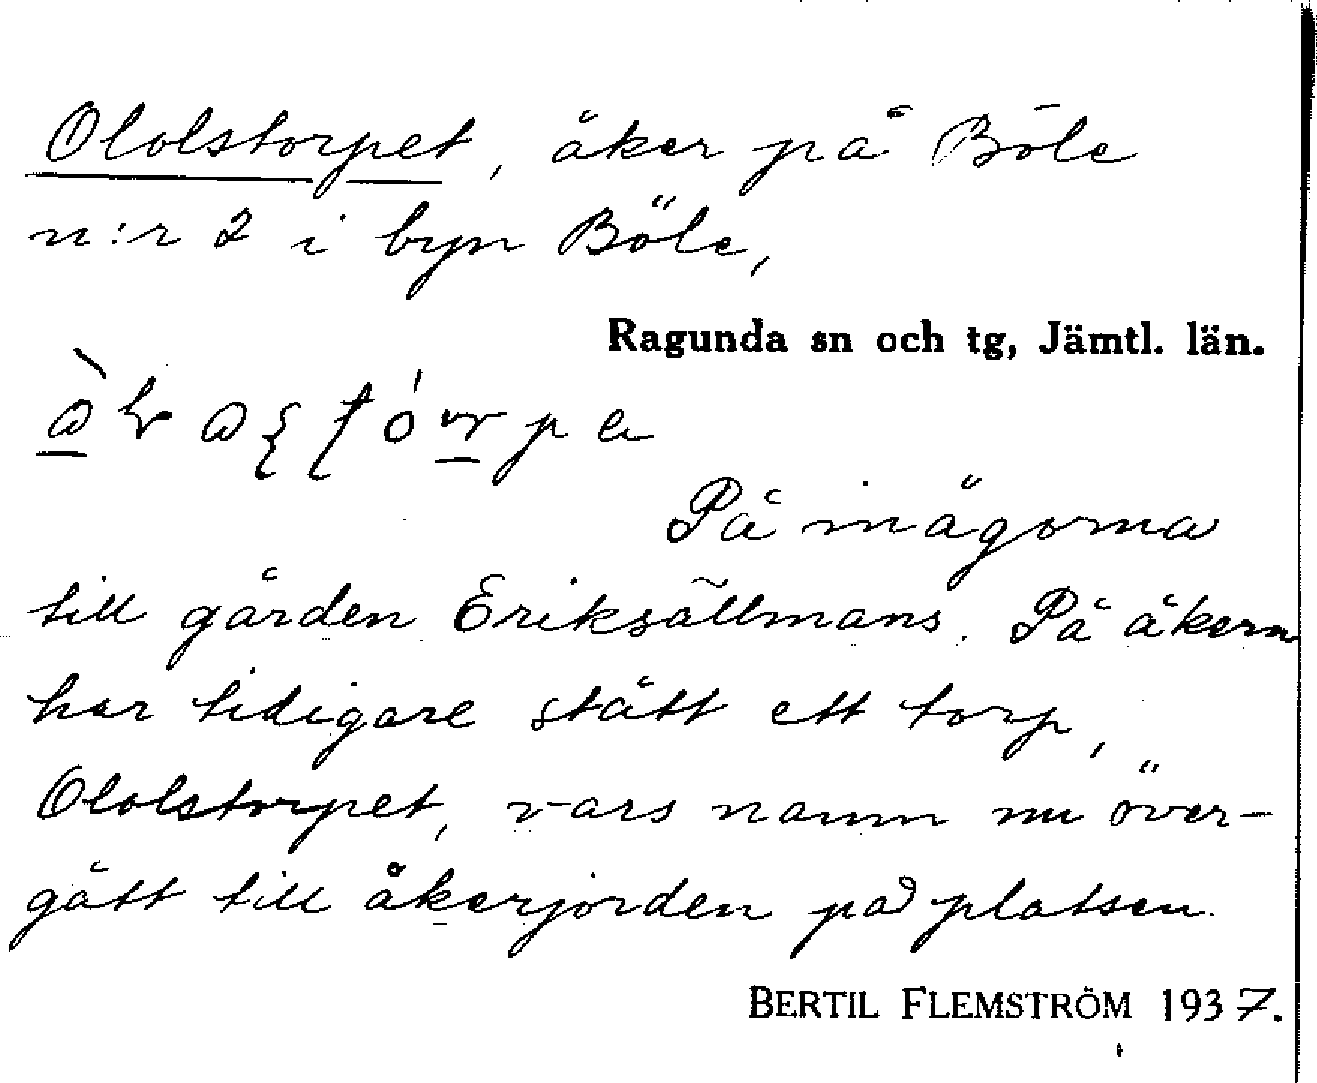 Ololstorpet, åker på Böle
n:r 2 i byn Böle,
Ragunda sn och tg, Jämtl. län.
På inägorna
till gården Eriksällmans. På åkern
har tidigare stått ett torp,
Ololstorpet, vars namn nu över-
gått till åkerjorden på platsen.
BERTIL FLEMSTRÖM 1937.